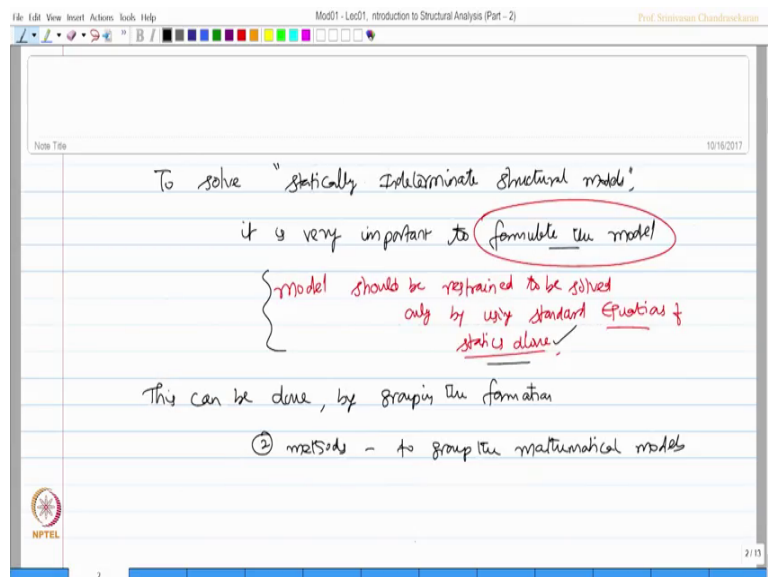 File Edit View Insert Actions Tools Help
Mod01 - Lec01, ntroduction to Structural Analysis (Part – 2)
Prof. Srinivasan Chandrasekaran
B I
Note Title
10/16/2017
To solve "statically Indeterminate structural models",
it is very important to formulate the model
model should be restrained to be solved
only by using standard Equations of
statics alone
This can be done, by grouping the formation
② methods – to group the mathematical models
NPTEL
2 / 13
2